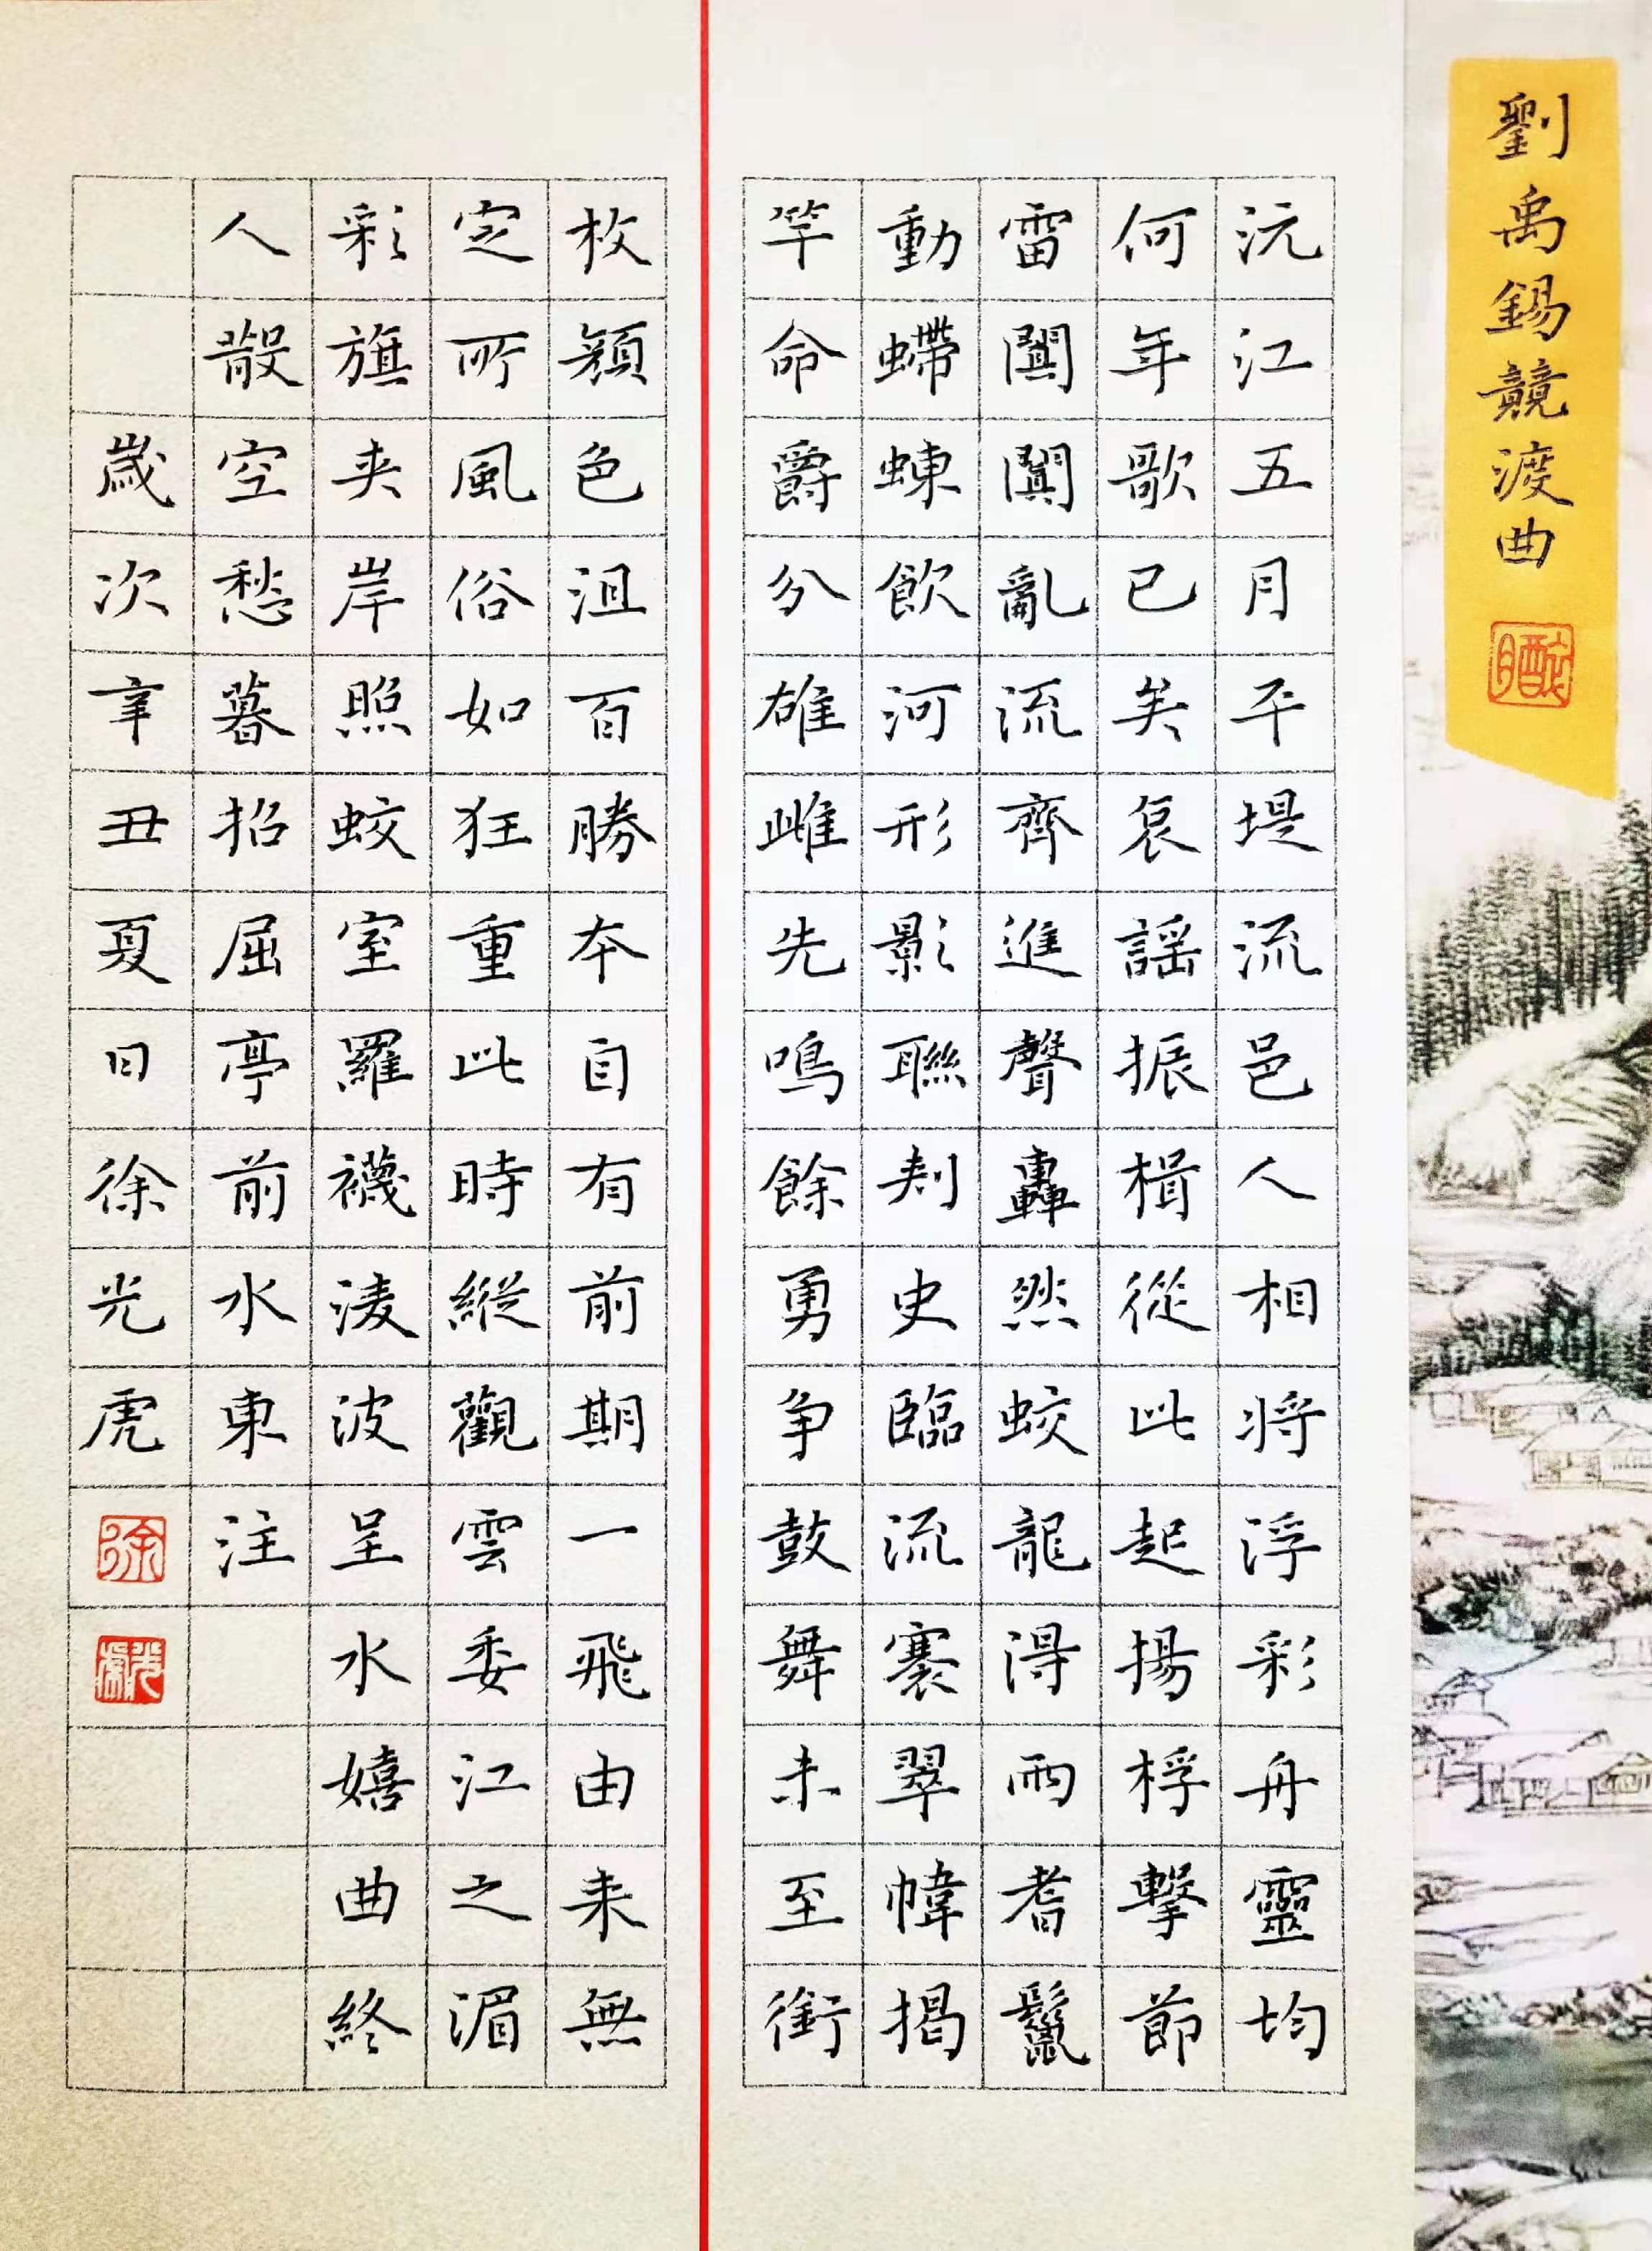 劉禹錫競渡曲
沅江五月平堤流邑人相将浮彩舟靈均
何年歌已矣哀謡振楫從此起揚桴擊節
雷闐闐亂流齊進聲轟然蛟龍得雨耆鬣
動螮蝀飲河形影聯刺史臨流褰翠幃揭
竿命爵分雄雌先鳴餘勇争鼓舞未至銜
枚顔色沮百勝本自有前期一飛由来無
定所風俗如狂重此時縱觀雲委江之湄
彩旗夹岸照蛟室羅襪淩波呈水嬉曲終
人散空愁暮招屈亭前水東注
歲次辛丑夏日徐光虎
徐
光虎